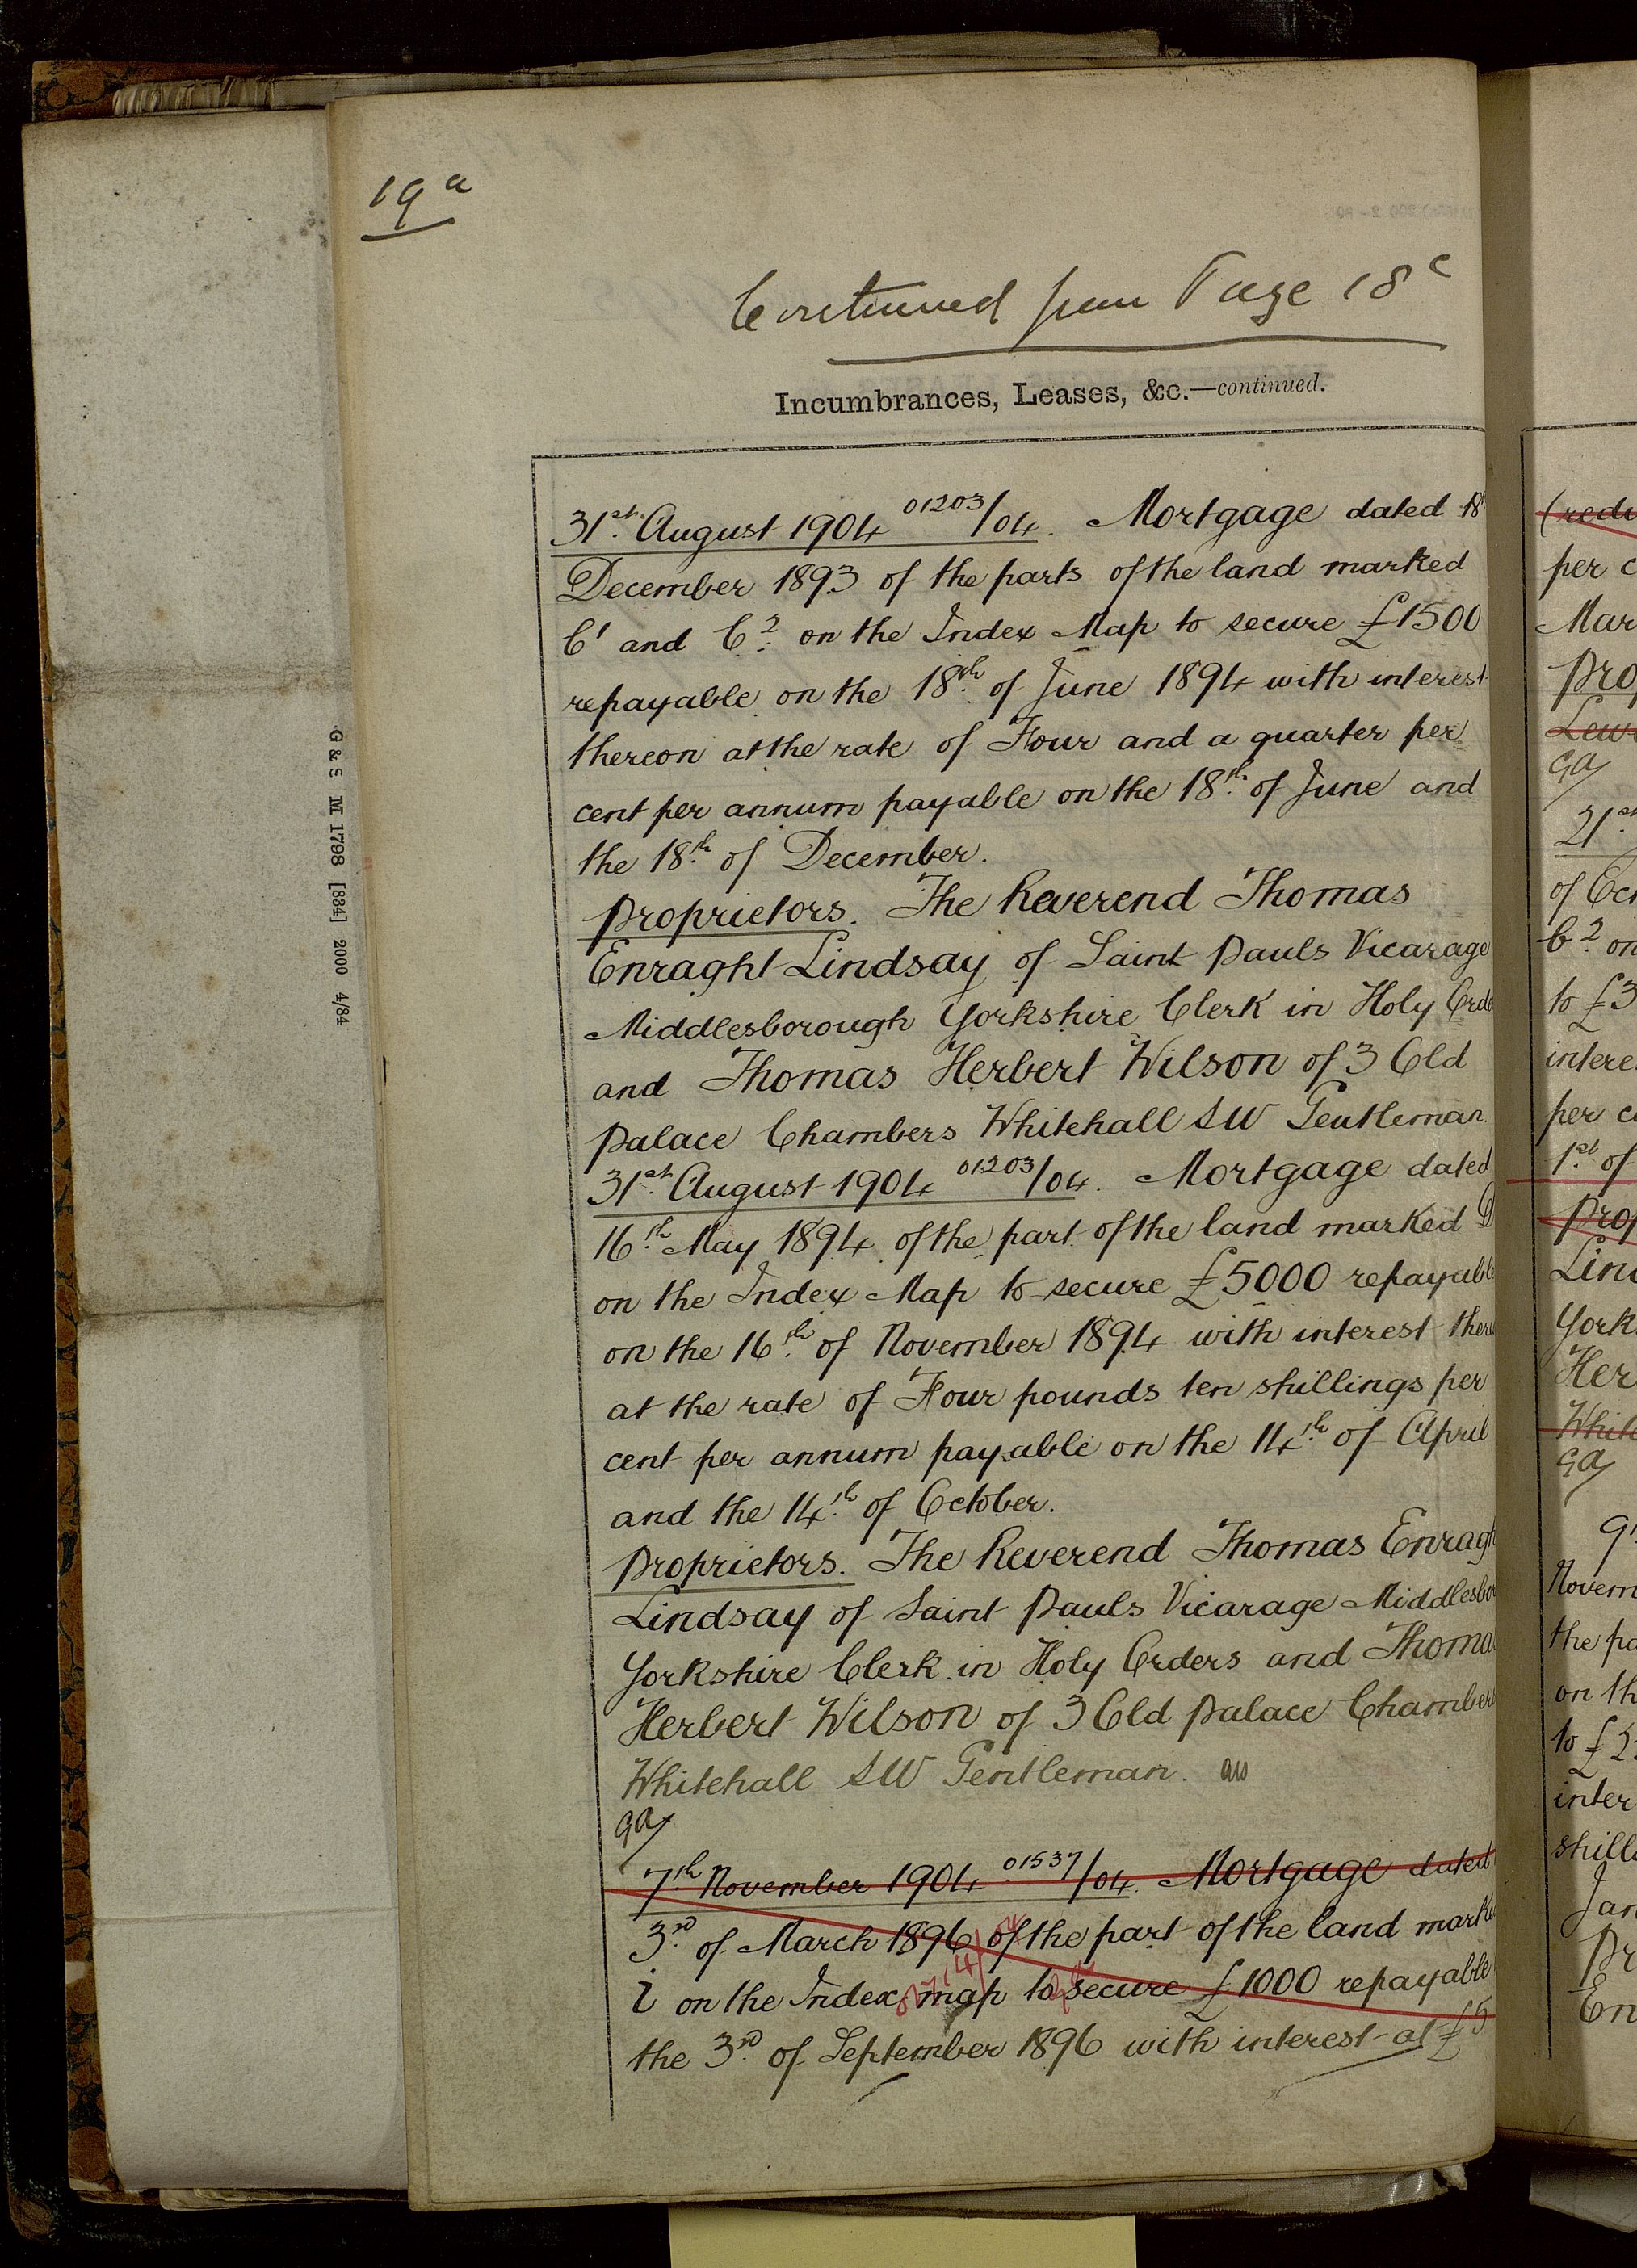 19 a
Continued from Page 18 c
Incumbrances, Leases, &c.—continued.
31st August 1904 01203/04. Mortgage dated 18
December 1893 of the parts of the land marked
C1 and C2 on the Index Map to secure £1500
repayable on the 18th of June 1894 with interest
thereon at the rate of Four and a quarter per
cent per annum payable on the 18th of June and
the 18th of December.
Proprietors. The Reverend Thomas
Enraght Lindsay of Saint Pauls Vicarage
Middlesborough Yorkshire Clerk in Holy Orde
and Thomas Herbert Wilson of 3 Old
Palace Chambers Whitehall SW Gentleman.
31st August 1904 01203/04. Mortgage dated
16th May 1894 of the part of the land marked D
on the Index Map to secure £5000 repayable
on the 16th of November 1894 with interest there
at the rate of Four pounds ten shillings per
cent per annum payable on the 14th of April
and the 14th of October.
Proprietors. The Reverend Thomas Enragh
Lindsay of Saint Pauls Vicarage Middlesbor
Yorkshire Clerk in Holy Orders and Thoma
Herbert Wilson of 3 Old Palace Chambers
Whitehall SW Gentleman.
7th November 1904 01537/04. Mortgage dated
3rd of March 1896 of the part of the land marke
i on the Index map to secure £1000 repayable
the 3rd of September 1896 with interest at £5
G & S M 1798 [884] 2000 4/84
(redu
per c
Mar
Prop
Lew
21st
of Oct
C2 on
to £3
interes
per ce
1st of
Prop
Lind
Yorks
Her
White
9t
Novem
the pa
on th
to £2
inter
shill
Jan
Pr
En